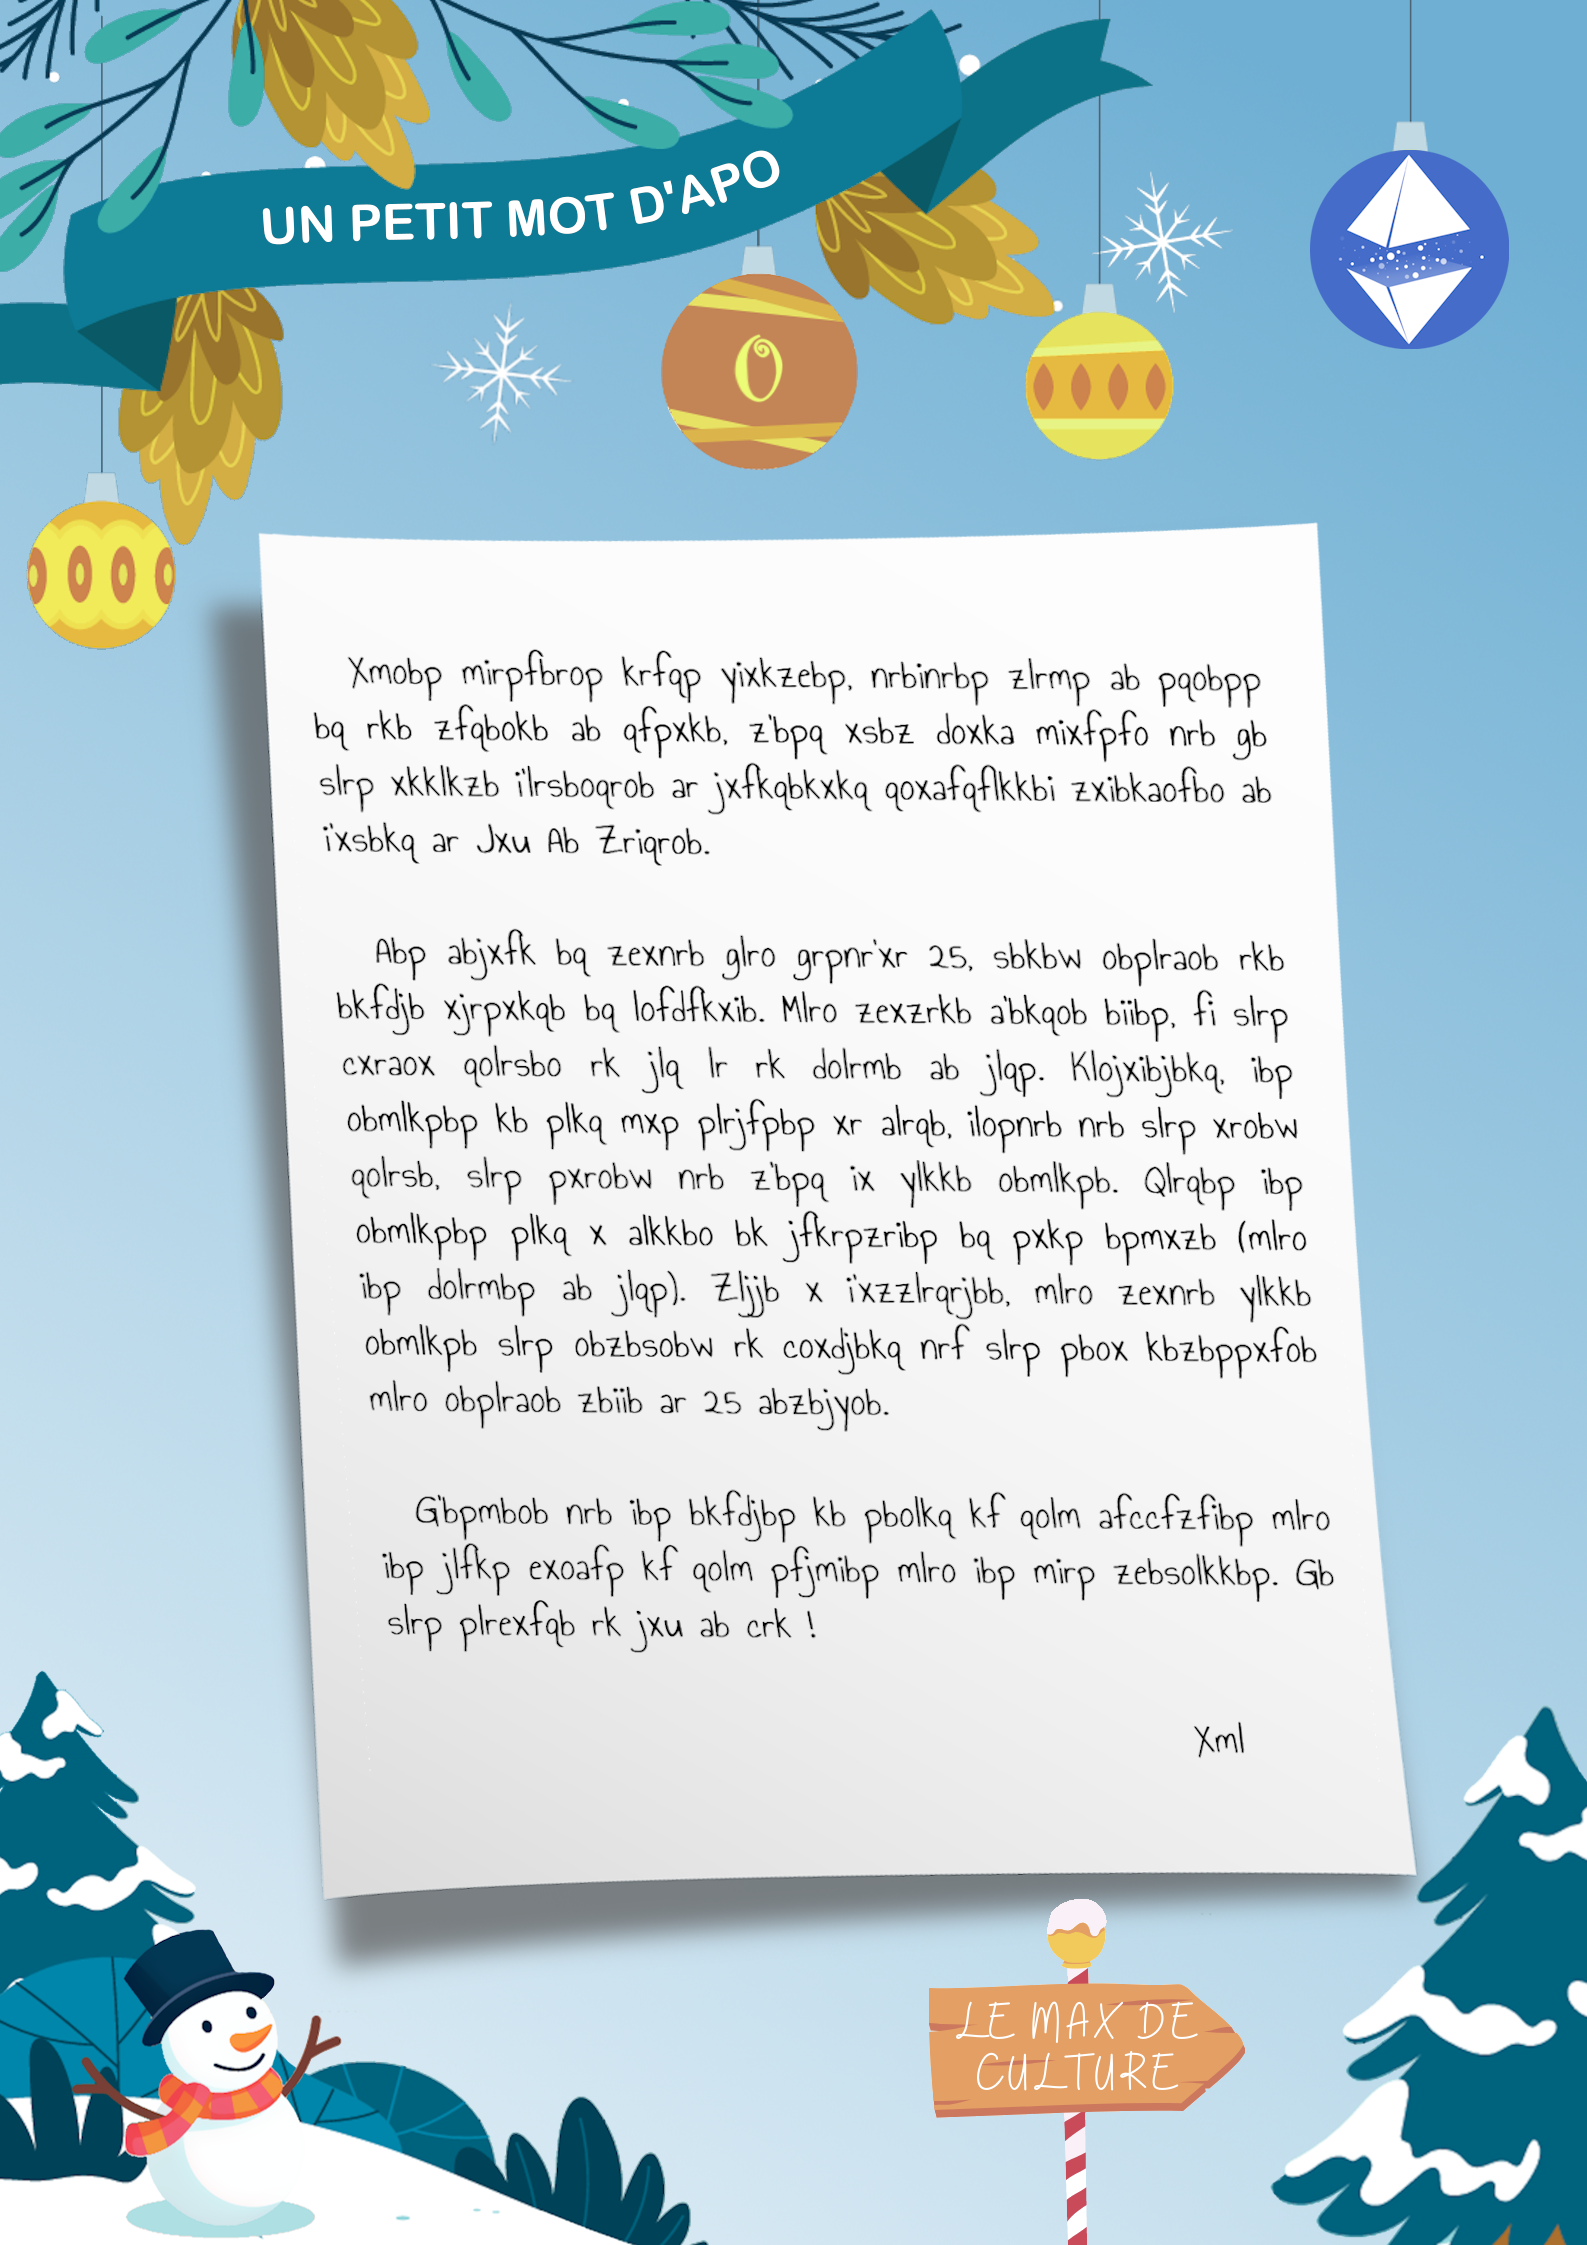 UN PETIT MOT D'APO
O
Xmobp mirpfbrop krfqp yixkzebp, nrbinrbp zlrmp ab pqobpp
bq rkb zfqbokb ab qfpxkb, z'bpq xsbz doxka mixfpfo nrb gb
slrp xkklkzb i'lrsboqrob ar jxfkqbkxkq qoxafqflkkbi zxibkaofbo ab
i'xsbkq ar Jxu Ab Zriqrob.
Abp abjxfk bq zexnrb glro grpnr'xr 25, sbkbw obplraob rkb
bkfdjb xjrpxkqb bq lofdfkxib. Mlro zexzrkb a'bkqob biibp, fi slrp
cxraox qolrsbo rk jlq lr rk dolrmb ab jlqp. Klojxibjbkq, ibp
obmlkpbp kb plkq mxp plrjfpbp xr alrqb, ilopnrb nrb slrp xrobw
qolrsb, slrp pxrobw nrb z'bpq ix ylkkb obmlkpb. Qlrqbp ibp
obmlkpbp plkq x alkkbo bk jfkrpzribp bq pxkp bpmxzb (mlro
ibp dolrmbp ab jlqp). Zljjb x i'xzzlrqrjbb, mlro zexnrb ylkkb
obmlkpb slrp obzbsobw rk coxdjbkq nrf slrp pbox kbzbppxfob
mlro obplraob zbiib ar 25 abzbjyob.
G'bpmbob nrb ibp bkfdjbp kb pbolkq kf qolm afccfzfibp mlro
ibp jlfkp exoafp kf qolm pfjmibp mlro ibp mirp zebsolkkbp. Gb
slrp plrexfqb rk jxu ab crk !
Xml
LE MAX DE
CULTURE